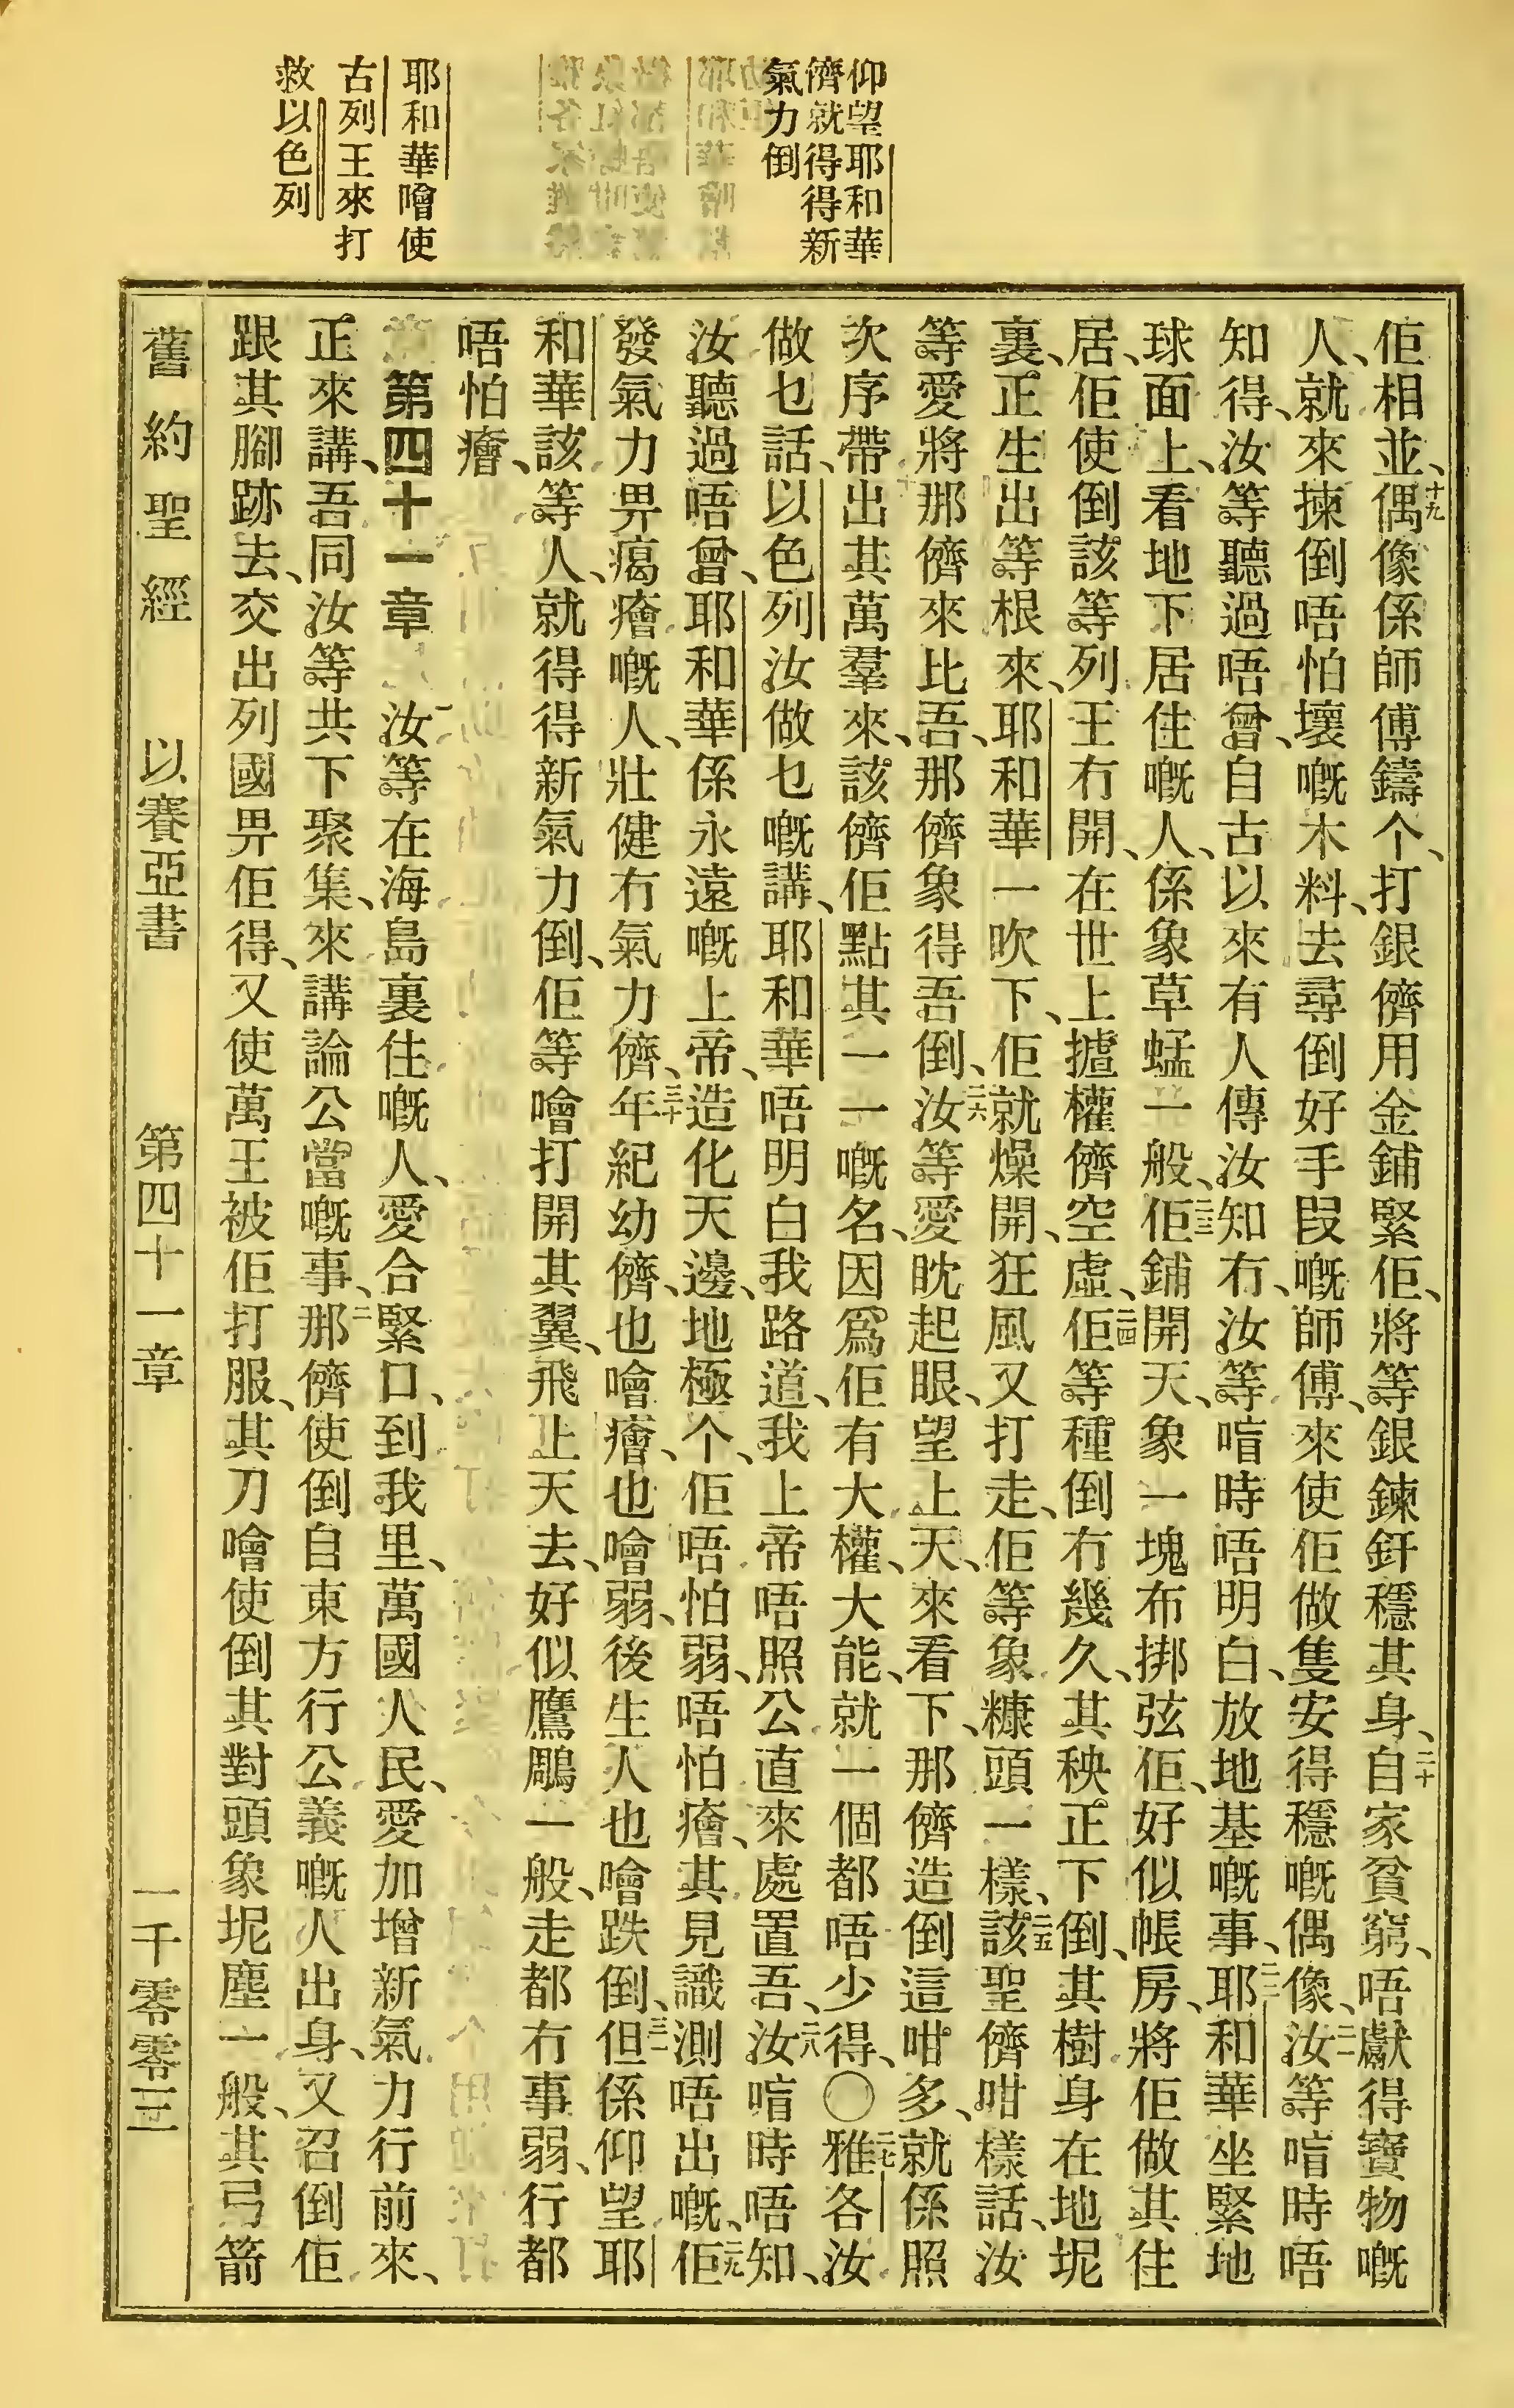 仰望耶和華
儕就得得新
氣力倒
耶和華噲使
古列王來打
救以色列
佢相並、十九偶像係師傅鑄个、打銀儕用金鋪緊佢、將等銀鍊釬穩其身、二十自家貧窮、唔獻得寶物嘅
人、就來揀倒唔怕壞嘅木料、去尋倒好手段嘅師傅、來使佢做隻安得穩嘅偶像、二一汝等㫘時唔
知得、汝等聽過唔曾、自古以來有人傳汝知冇、汝等㫘時唔明白、放地基嘅事、二二耶和華坐緊地
球面上、看地下居住嘅人、係象草蜢一般、二三佢鋪開天、象一塊布挷弦佢、好似帳房、將佢做其住
居、佢使倒該等列王冇開、在世上攎權儕空虛、二四佢等種倒冇幾久、其秧正下倒、其樹身在地坭
裏、正生出等根來、耶和華一吹下、佢就燥開、狂風又打走、佢等象糠頭一樣、二五該聖儕咁樣話、汝
等愛將那儕來比吾、那儕象得吾倒、二六汝等愛眈起眼、望上天、來看下、那儕造倒這咁多、就係照
次序帶出其萬羣來、該儕佢點其一一嘅名、因爲佢有大權、大能、就一個都唔少得、〇二七雅各汝
做乜話、以色列汝做乜嘅講、耶和華唔明白我路道、我上帝唔照公直來處置吾、二八汝㫘時唔知、
汝聽過唔曾、耶和華係永遠嘅上帝、造化天邊、地極个、佢唔怕弱、唔怕㿈、其見識測唔出嘅、二九佢
發氣力畀瘑㿈嘅人、壯健冇氣力儕、三十年紀幼儕、也噲㿈、也噲弱、後生人也噲跌倒、三一但係仰望耶
和華該等人、就得得新氣力倒、佢等噲打開其翼、飛上天去、好似鷹鵰一般、走都冇事弱、行都
唔怕㿈、
第四十一章 一汝等在海島裏住嘅人、愛合緊口、到我里、萬國人民、愛加增新氣力行前來、
正來講、吾同汝等共下聚集、來講論公當嘅事、二那儕使倒自東方行公義嘅人出身、又召倒佢
跟其腳跡去、交出列國畀佢得、又使萬王被佢打服、其刀噲使倒其對頭象坭塵一般、其弓箭
舊約聖經 以賽亞書 第四十一章 一千零零三